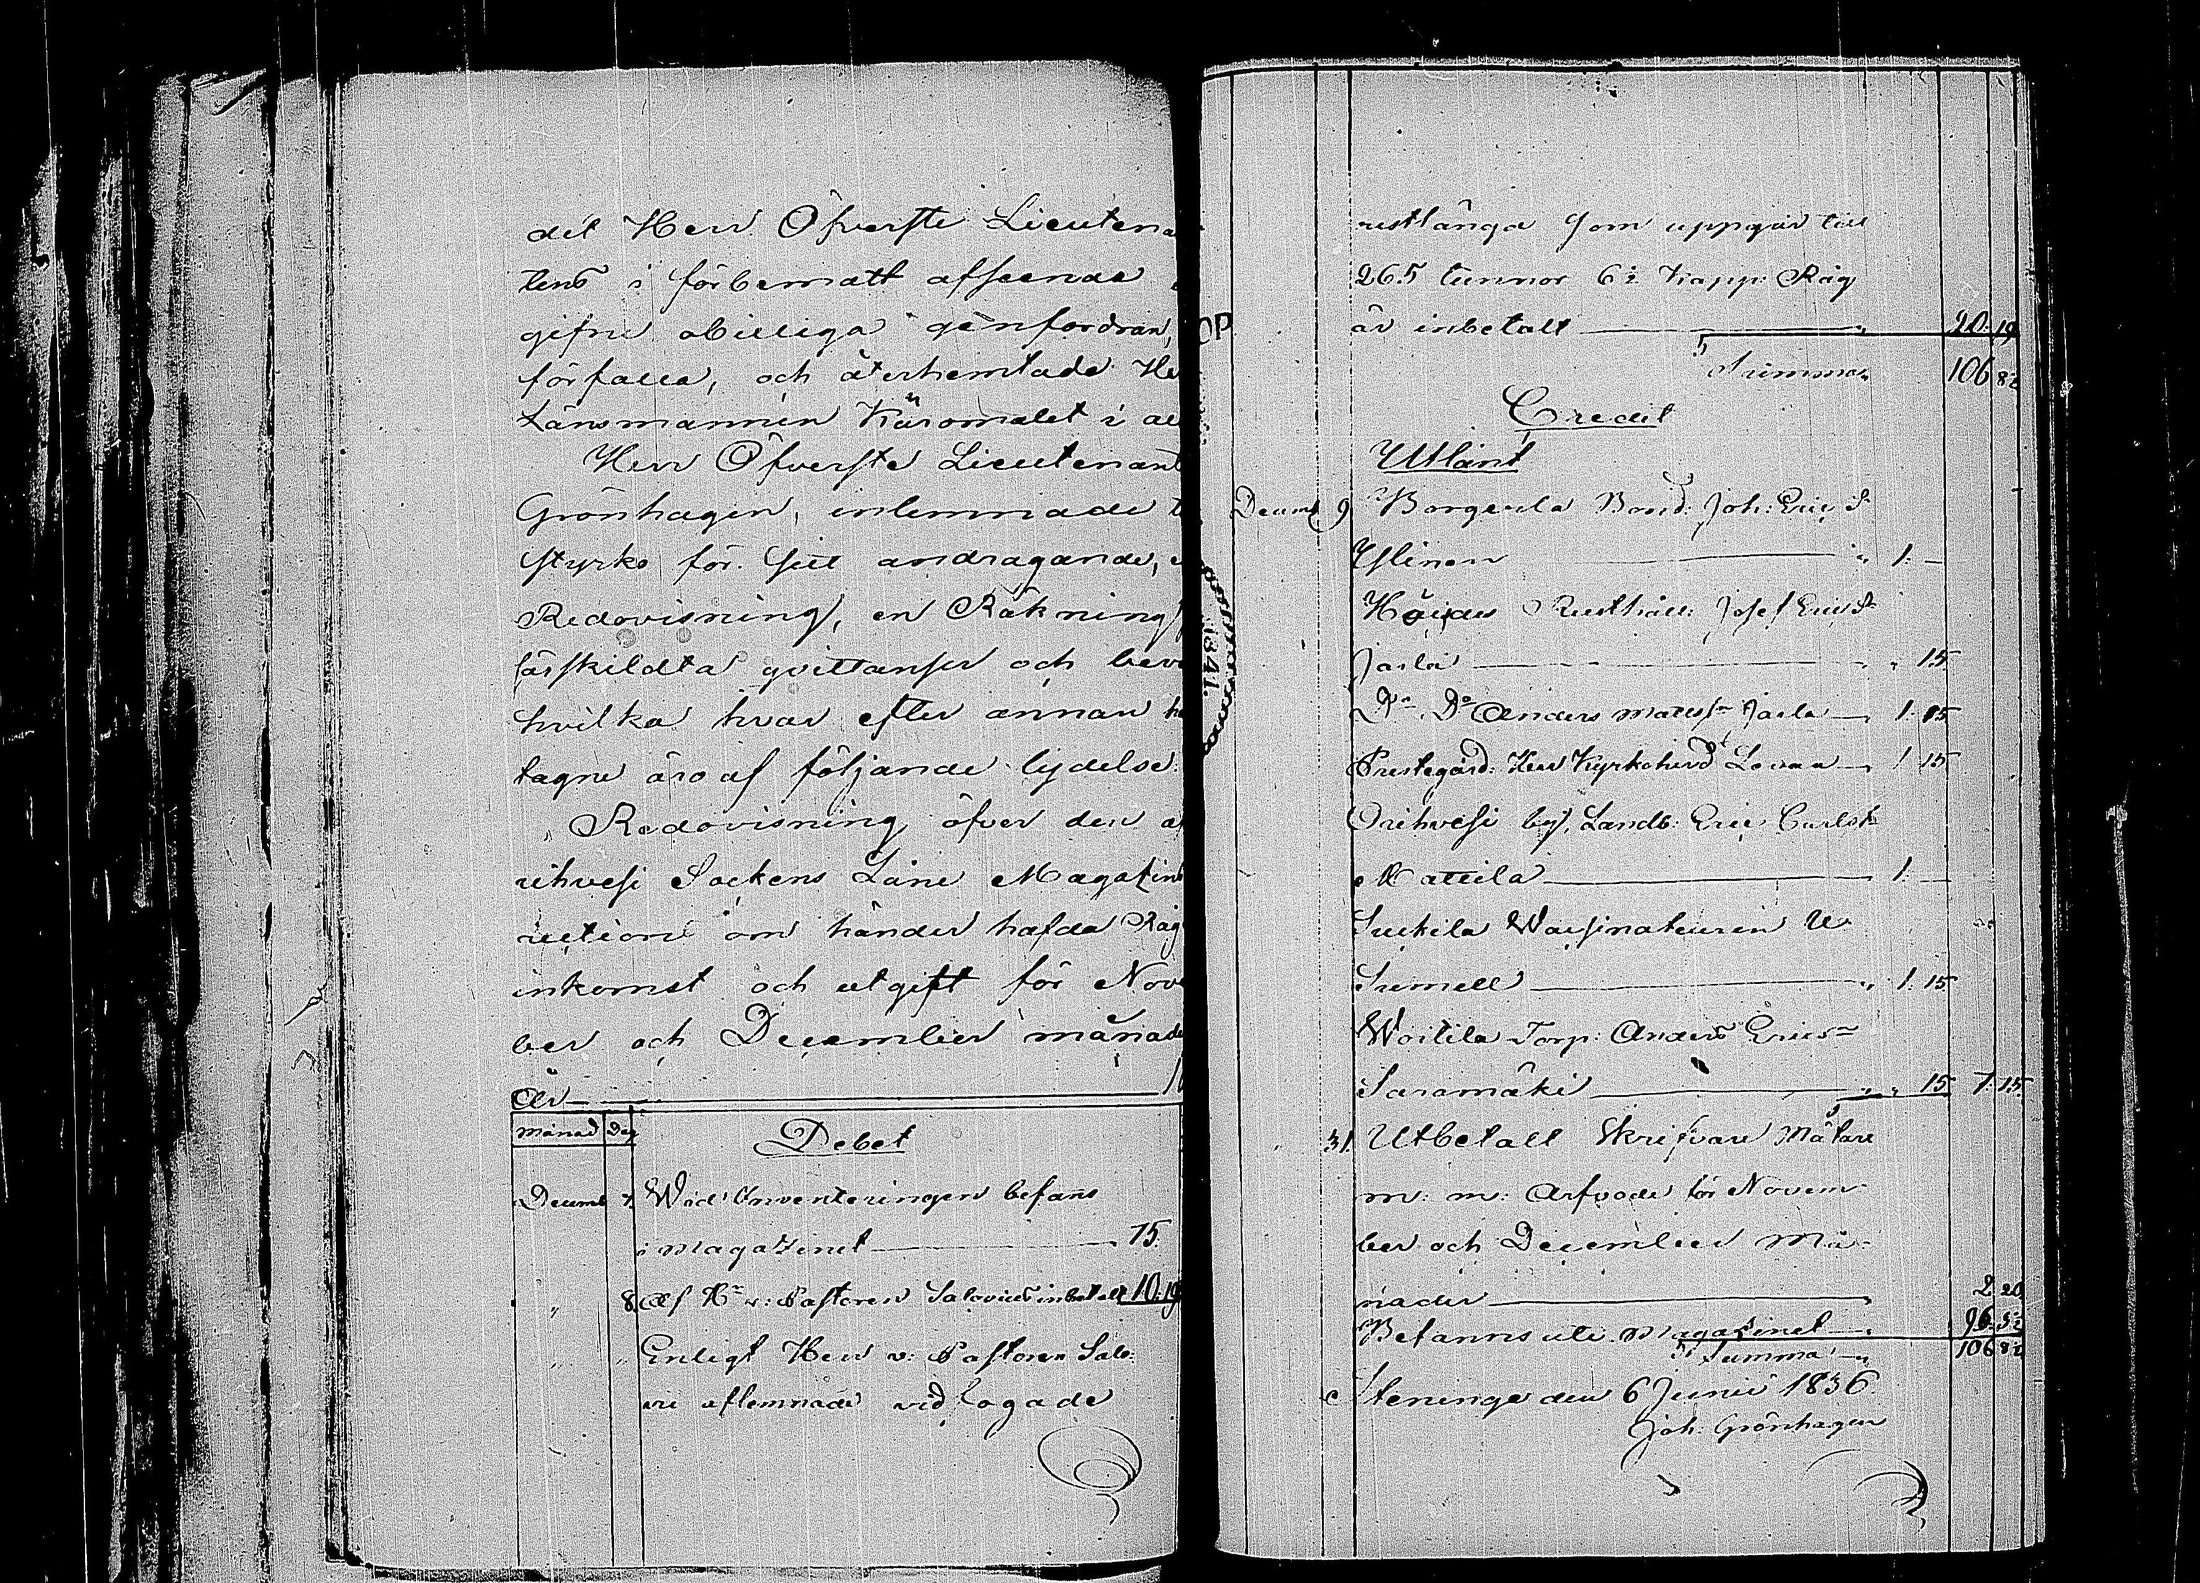 det Herr Öfverste Lieutena
tens i förbemätt afseende
gifne obilliga genfordran,
förfalla, och återhemtade He
Länsmannen Käromålet i al
Herr Öfverste Lieutenant
Grönhagen, inlemnade t
styrko för sitt andragande, e
Redovisning, en Räkning
särskildta qvittanser och bevi
hvilka hvar efter annan
tagne äro af följande lydelse:
Redovisning öfver den a
rihvesi Sockens Låne Magazins
rection om händer hafda Råg
inkomst och utgift för Nov
ber och December månade
År 1
Månad Dag Debet
Decemb 7. Wid Inventeringen befans
i Magazinet 75.
" 8. Af Hr v: Pastoren Salovius inbetalt 10. 19
" " Enligt Herr v: Pastoren Salo-
vii aflemnade vid lagade
restlänga som uppgår till
265 tunnor 6½ kapp: Råg
är inbetalt 20. 19
Summa 106 8½
Credit
Utlånt
Decemb 9 Borgenla Bond: Joh: Erics:
Yslinen 1. —
Rusthåll: Josef Erics:
Jaila " 15
D:o D:o Anders Matts:n Jaila 1. 15
Prestegård: Herr Kyrkoherd 1 15
Orihvesi by, Landb: Eric Carls:n
Mattila 1. —
Suckila
Sumell 1. 15
Woitila Torp: Anders Erics:n
Saramäki " 15 7. 15
31. Utbetalt Skrifvare Mätare
m: m: Arfvode för Novem-
ber och December Må-
nader 2 20
Befanns uti Magazinet 96. 5½
Summa 106 8½
Steninge den 6 Junii 1836.
Joh: Grönhagen
1341.